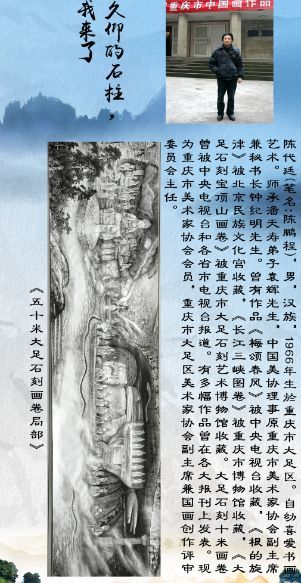 重庆市中国画作品
久仰的石柱，
我来了
陈代廷(笔名:陈鹏程)，男，汉族，1966年生於重庆市大足区。自幼喜爱书画
艺术。师承潘天寿弟子袁辉先生，中国美协理事原重庆市美术家协会副主席
兼秘书长钟纪明先生。曾有作品《梅领春风》被中央电视台收藏，《根的旋
律》被北京民族文化宫收藏，《长江三峡图卷》被重庆市博物馆收藏，《大
足石刻宝顶山画卷》被重庆市大足石刻艺术博物馆收藏。大足石刻十米画卷
曾被中央电视台和各省市电视台报道。有多幅作品曾在各大报刊上发表。现
为重庆市美术家协会会员，重庆市大足区美术家协会副主席兼国画创作评审
委员会主任。
《五十米大足石刻画卷局部》